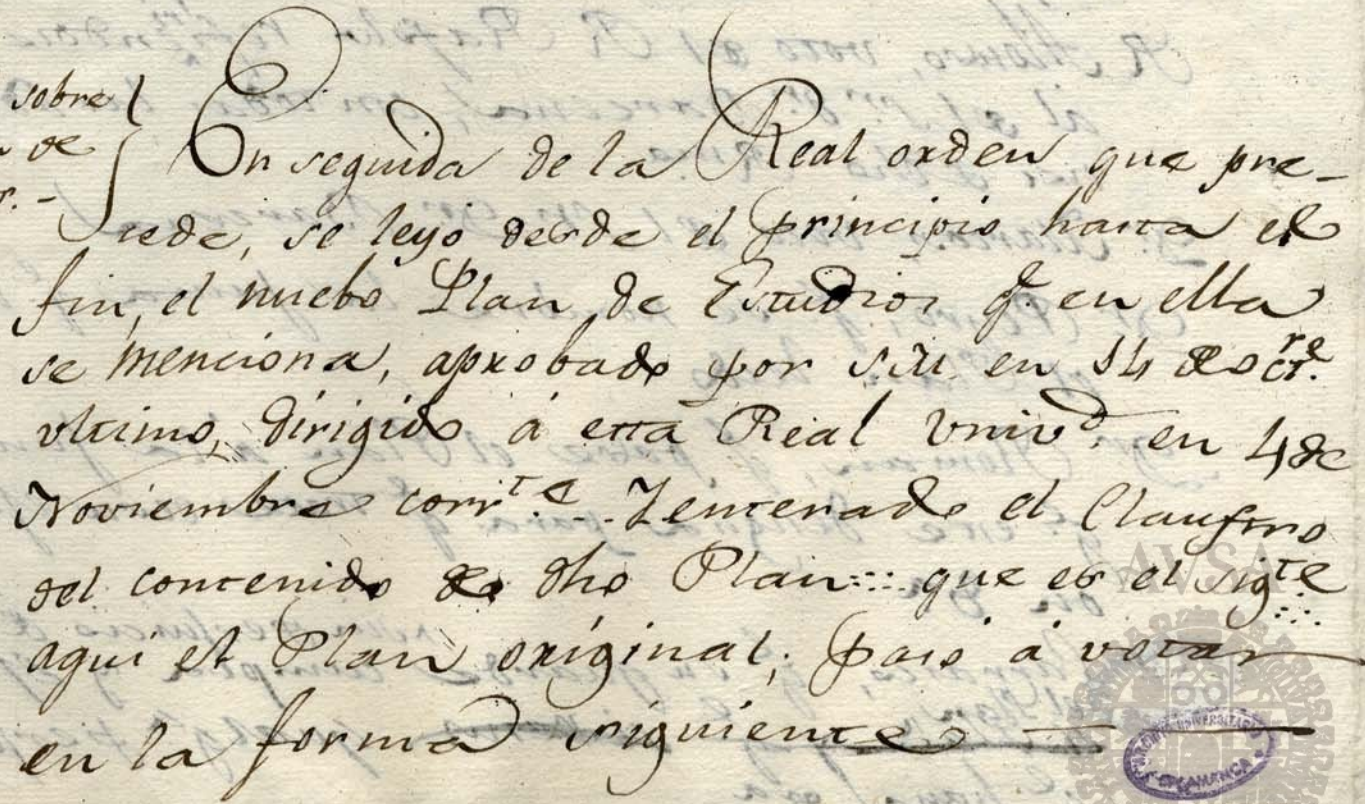 sobre
de
En seguida de la Real orden que pre-
cede, se leyo desde el principio hasta el
fin, el nuebo Plan de Estudios q.e en ella
se menciona, aprobado por S.M en 14 de oct.re
ultimo, dirigido á esta Real Univ.d en 4 de
Noviembre corr.te Y enterado el Claustro
del contenido de dho Plan::: que es el sig.te
aqui el Plan original; paso á votar
en la forma siguiente
AVSA
ARCHIVO UNIVERSITARIO
SALAMANCA